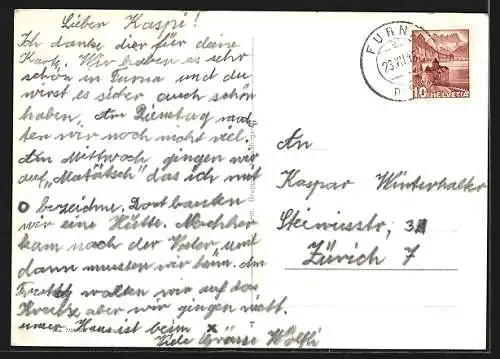 Lieben Kaspi!
Ich danke dier für deine
Karte. Wir haben es sehr
schön in Furna und du
wirst es sicher auch schön
haben. Am Dienstag mach
ten wir noch nicht viel.
Am Mittwoch gingen wir
auf "Matätsch" das ich mit
o bezeichne. Dort bauten
wir eine Hütte. Nachher
kam nach der Vater und
dann mussten wir heim. Am
Freitag wolten wir auf das
Kreuz, aber wir gingen nicht.
unser Haus ist beim x
Viele Grüsse Wölfli
FURNA
23.VII
10 HELVETIA
An
Kaspar Winterhalter
Steinwiesstr, 37
Zürich 7